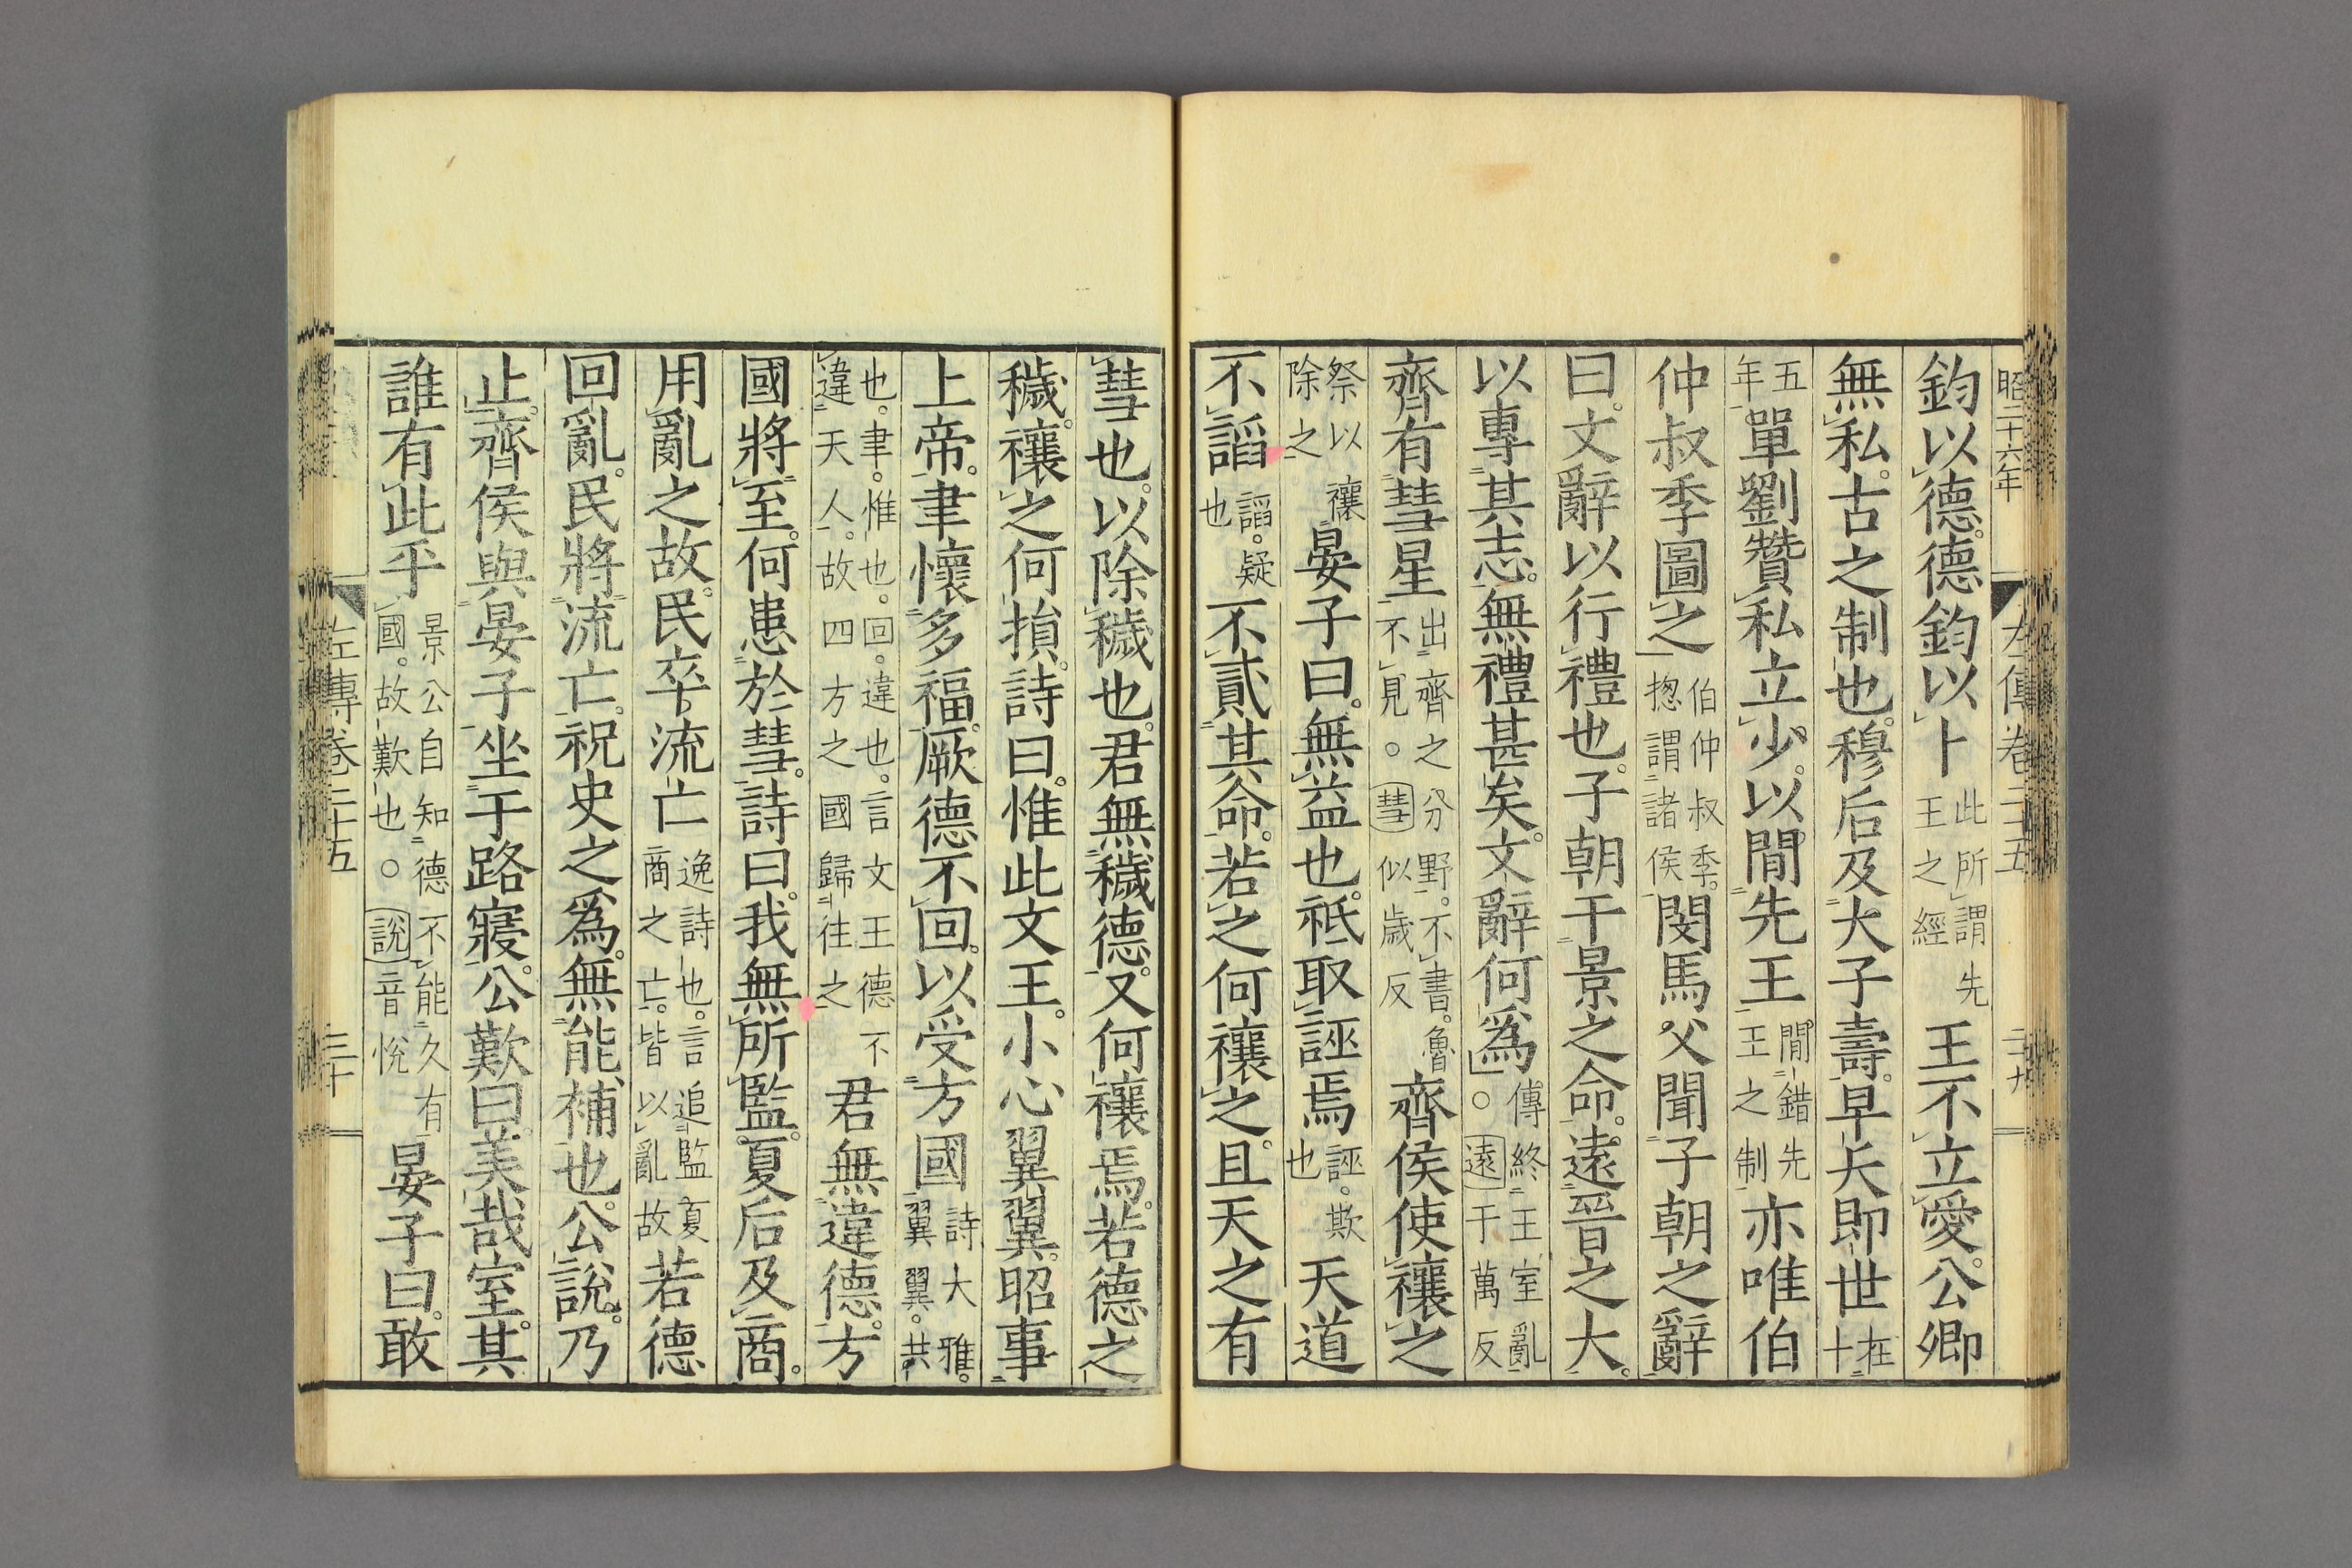 昭二十六年 左傳卷二十五 二十九
鈞以德。德鈞以卜此所謂先王之經王不立愛。公卿
無私。古之制也。穆后及大子壽。早夭即世在十
五年單劉贊私立少。以閒先王閒錯先王之制亦唯伯
仲叔季圖之伯仲叔季。揔謂諸侯閔馬父聞子朝之辭
曰。文辭以行禮也。子朝干景之命。遠晉之大。
以專其志。無禮甚矣。文辭何爲傳終王室亂○遠于萬反
齊有彗星出齊之分野。不書。魯不見。○彗似歲反齊侯使禳之
祭以禳除之晏子曰。無益也。祗取誣焉誣。欺也天道
不謟謟。疑也不貳其命。若之何禳之。且天之有
彗也。以除穢也。君無穢德。又何禳焉。若德之
穢。禳之何損。詩曰。惟此文王。小心翼翼。昭事
上帝。聿懷多福。厥德不回。以受方國詩大雅。翼翼。共
也。聿。惟也。回。違也。言文王德不違天人。故四方之國歸往之君無違德。方
國將至。何患於彗。詩曰。我無所監。夏后及商。
用亂之故。民卒流亡逸詩也。言追監夏商之亡。皆以亂故若德
回亂。民將流亡。祝史之爲。無能補也。公說。乃
止。齊侯與晏子坐于路寢。公歎曰。美哉室。其
誰有此乎景公自知德不能久有國。故歎也。○說音悅晏子曰。敢
左傳卷二十五 三十